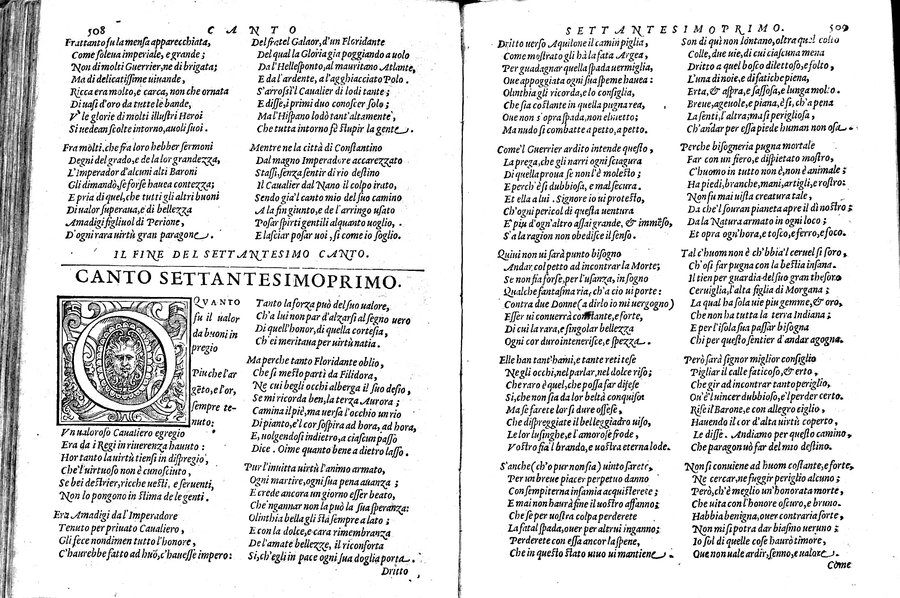 508 CANTO
Frattanto fu la mensa apparecchiata,
Come solea imperiale, e grande;
Non di molti Guerrier, ne di brigata;
Ma di delicatissime uiuande,
Ricca era molto, e carca, non che ornata
Di uasi d'oro da tutte le bande,
V' le glorie di molti illustri Heroi
Si uedean scolte intorno, auoli suoi.
Fra molti, che fra loro hebber sermoni
Degni del grado, e de la lor grandezza,
L'Imperador d'alcuni alti Baroni
Gli dimandò, se forse hauea contezza;
E pria di quel, che tutti gli altri buoni
Di ualor superaua, e di bellezza
Amadigi figliuol di Perione,
D'ogni rara uirtù gran paragone.
Del fratel Galaor, d'un Floridante
Del qual la Gloria gia poggiando a uolo
Da l'Hellesponto, al mauritano Atlante,
E da l'ardente, al l'agghiacciato Polo.
S'arrosì l'Caualier di lodi tante;
E disse, i primi duo conoscer solo;
Ma l'Hispano lodò tant'altamente,
Che tutta intorno fe stupir la gente.
Mentre ne la città di Constantino
Dal magno Imperadore accarezzato
Stassi, senza sentir di rio destino
Il Caualier dal Nano il colpo irato,
Sendo gia l'canto mio del suo camino
A la fin giunto, e de l'arringo usato
Posar spirti gentili alquanto uoglio,
E lasciar posar uoi, si come io soglio.
IL FINE DEL SETTANTESIMO CANTO.
CANTO SETTANTESIMOPRIMO.
QVANTO
sù il ualor
da buoni in
pregio
Piu che l'ar
gẽto, e l'or,
sempre te-
nuto;
Vn ualoroso Caualiero egregio
Era da i Regi in riuerenza hauuto:
Hor tanto la uirtù tiensi in dispregio,
Che'l uirtuoso non è conosciuto,
Se bei destrier, ricche uesti, e seruenti,
Non lo pongono in stima de le genti.
Era Amadigi da l'Imperadore
Tenuto per priuato Caualiero,
Gli fece nondimen tutto l'honore,
C'haurebbe fatto ad huõ, c'hauesse impero:
Tanto la forza può del suo ualore,
C'ha l'ali non par d'alzarsi al segno uero
Di quell'honor, di quella cortesia,
Ch'ei meritaua per uirtù natia.
Ma perche tanto Floridante oblio,
Che si mesto partì da Filidora,
Ne cui begli occhi alberga il suo desio,
Se mi ricorda ben, la terza Aurora;
Camina il piè, ma uersa l'occhio un rio
Di pianto, e'l cor sospira ad hora, ad hora,
E, uolgendosi indietro, a ciascun passo
Dice. Oime quanto bene a dietro lasso.
Pur l'inuitta uirtù l'animo armato,
Ogni martire, ogni sua pena auanza;
E crede ancora un giorno esser beato,
Che'ngannar non la può la sua speranza:
Olinthia bella gli sta sempre a lato;
E con la dolce, e cara rimembranza
De l'amate bellezze, il riconforta
Si, ch'egli in pace ogni sua doglia porta.
Dritto
SETTANTESIMOPRIMO. 509
Dritto uerso Aquilone il camin piglia,
Come mostrato gli hà la fata Argea,
Per guadagnar quella spada uermiglia,
Oue appoggiata ogni sua speme hauea:
Olinthia gli ricorda, e lo consiglia,
Che sia costante in quella pugna rea,
Oue non s'opra spada, non elmetto;
Ma nudo si combatte a petto, a petto.
Come'l Guerrier ardito intende questo,
La prega, che gli narri ogni sciagura
Di quella proua se non l'è molesto;
E perch'è si dubbiosa, e mal secura.
Et ella a lui. Signore io ui protesto,
Ch'ogni pericol di questa uentura
E' piu d'ogn'altro assai grande, & immẽso,
S'a la ragion non obedisce il senso.
Quiui non ui sarà punto bisogno
Andar, col petto ad incontrar la Morte;
Se non fia forse, per l'usanza, in sogno
Qualche fantasma ria, ch'a cio ui porte:
Contra due Donne (a dirlo io mi uergogno)
Esser ui conuerrà constante, e forte,
Di cui la rara, e singolar bellezza
Ogni cor duro intenerisce, e spezza.
Elle han tant'hami, e tante reti tese
Ne gli occhi, nel parlar, nel dolce riso;
Che raro è quel, che possa far difese
Si, che non sia da lor beltà conquiso:
Ma se farete lor si dure offese,
Che dispreggiate il bello leggiadro uiso,
Le lor lusinghe, e l'amorose frode,
Vostro fia l'brando, e uostra eterna lode.
S'anche (ch'o pur non sia) uinto sarete,
Per un breue piacer perpetuo danno
Con sempiterna infamia acquisterete;
E mai non haurà fine il uostro affanno;
Che se per uostra colpa perderete
La fatal spada, ouer per altrui inganno;
Perderete con essa ancor la spene,
Che in questo stato uiuo ui mantiene.
Son di quì non lontano, oltra quel colto
Colle, due uie, di cui ciascuna mena
Dritto a quel bosco dilettoso, e folto,
L'una di noie, e di fatiche piena,
Erta, & aspra, e sassosa, e lunga molto.
Breue, ageuole, e piana, è sì, ch'a pena
La senti, l'altra; ma sì perigliosa,
Ch'andar per essa piede human non osa.
Perche bisogneria pugna mortale
Far con un fiero, e dispietato mostro,
C'huomo in tutto non è, non è animale;
Ha piedi, branche, mani, artigli, e rostro:
Non fu mai uista creatura tale,
Da che'l souran pianeta apre il dì nostro;
Da la Natura armato in ogni loco;
Et opra ogn'hora, e tosco, e ferro, e foco.
Tal c'huom non è ch'hbbia il ceruel si foro,
Ch'osi far pugna con la bestia insana.
Il tien per guardia del suo gran thesoro
Ceruiglia, l'alta figlia di Morgana;
La qual ha sola uie piu gemme, & oro,
Che non ha tutta la terra Indiana;
E per l'isola sua passar bisogna
Chi per questo sentier d'andar agogna.
Però sarà signor miglior consiglio
Pigliar il calle faticoso, & erto,
Che gir ad incontrar tanto periglio,
Ou'è l'uincer dubbioso, e'l perder certo.
Rise il Barone, e con allegro ciglio,
Hauendo il cor d'alta uirtù coperto,
Le disse. Andiamo per questo camino,
Che paragon uò far del mio destino.
Non si conuiene ad huom costante, e forte,
Ne cercar, ne fuggir periglio alcuno;
Però, ch'è meglio un'honorata morte,
Che uita con l'honore oscuro, e bruno.
Habbia benigna, ouer contraria sorte,
Non mi si potrà dar biasmo ueruno;
Io sol di quelle cose haurò timore,
Oue non uale ardir, senno, e ualore.
Come